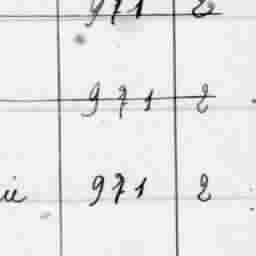 971 2
971 2
971 2